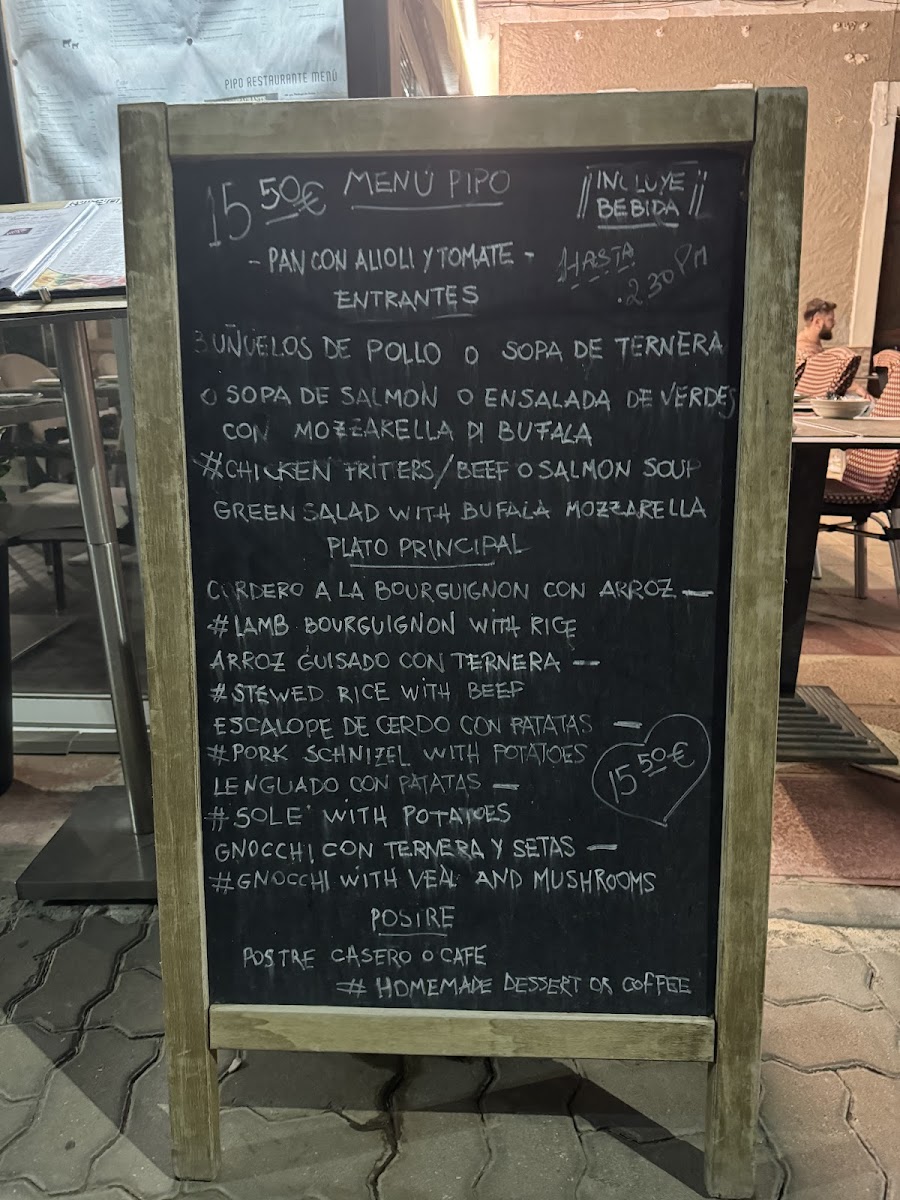 PIPO RESTAURANTE MENÚ
15 50€ MENÚ PIPO
¡¡ INCLUYE BEBIDA !!
- PAN CON ALIOLI Y TOMATE -
HASTA
2 30 PM
ENTRANTES
BUÑUELOS DE POLLO O SOPA DE TERNERA
O SOPA DE SALMON O ENSALADA DE VERDES
CON MOZZARELLA DI BUFALA
#CHICKEN FRITTERS/BEEF O SALMON SOUP
GREEN SALAD WITH BUFALA MOZZARELLA
PLATO PRINCIPAL
CORDERO A LA BOURGUIGNON CON ARROZ —
#LAMB BOURGUIGNON WITH RICE
ARROZ GUISADO CON TERNERA —
#STEWED RICE WITH BEEF
ESCALOPE DE CERDO CON PATATAS —
#PORK SCHNIZEL WITH POTATOES
15 50€
LENGUADO CON PATATAS —
#SOLE WITH POTATOES
GNOCCHI CON TERNERA Y SETAS —
#GNOCCHI WITH VEAL AND MUSHROOMS
POSTRE
POSTRE CASERO O CAFE
# HOMEMADE DESSERT OR COFFEE